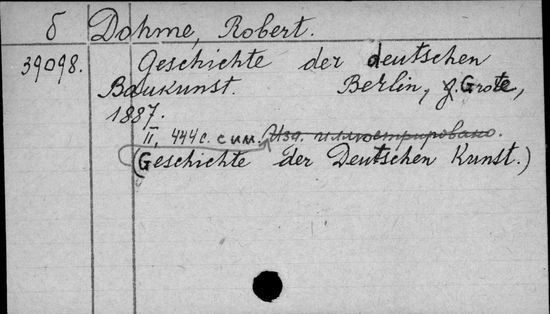 б Dohme, Robert.
39098. Geschichte der deutschen
Baukunst. Berlin, g. Grote,
1887.
II, 444 с. с илл. Изд. иллюстрировано.
(Geschichte der Deutschen Kunst.)